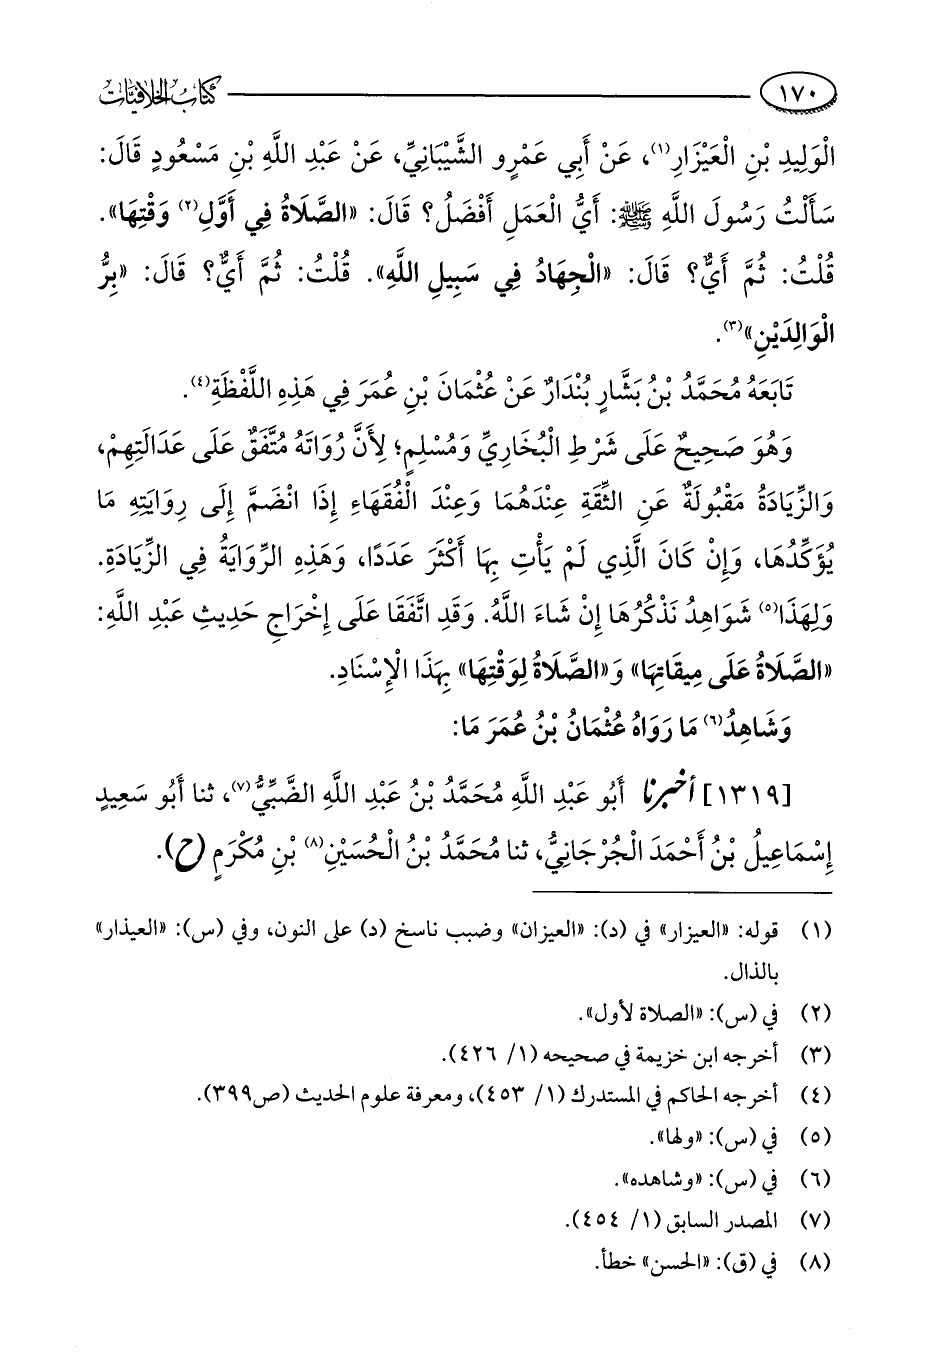 ١٧٠ كتاب الخلافيات
الْوَلِيدِ بْنِ الْعَيْزَارِ(١)، عَنْ أَبِي عَمْرٍو الشَّيْبَانِيِّ، عَنْ عَبْدِ اللَّهِ بْنِ مَسْعُودٍ قَالَ:
سَأَلْتُ رَسُولَ اللَّهِ ﷺ: أَيُّ الْعَمَلِ أَفْضَلُ؟ قَالَ: «الصَّلَاةُ فِي أَوَّلِ(٢) وَقْتِهَا».
قُلْتُ: ثُمَّ أَيٌّ؟ قَالَ: «الْجِهَادُ فِي سَبِيلِ اللَّهِ». قُلْتُ: ثُمَّ أَيٌّ؟ قَالَ: «بِرُّ
الْوَالِدَيْنِ»(٣).
تَابَعَهُ مُحَمَّدُ بْنُ بَشَّارٍ بُنْدَارٌ عَنْ عُثْمَانَ بْنِ عُمَرَ فِي هَذِهِ اللَّفْظَةِ(٤).
وَهُوَ صَحِيحٌ عَلَى شَرْطِ الْبُخَارِيِّ وَمُسْلِمٍ؛ لِأَنَّ رُوَاتَهُ مُتَّفَقٌ عَلَى عَدَالَتِهِمْ،
وَالزِّيَادَةُ مَقْبُولَةٌ عَنِ الثِّقَةِ عِنْدَهُمَا وَعِنْدَ الْفُقَهَاءِ إِذَا انْضَمَّ إِلَى رِوَايَتِهِ مَا
يُؤَكِّدُهَا، وَإِنْ كَانَ الَّذِي لَمْ يَأْتِ بِهَا أَكْثَرَ عَدَدًا، وَهَذِهِ الرِّوَايَةُ فِي الزِّيَادَةِ.
وَلِهَذَا(٥) شَوَاهِدُ نَذْكُرُهَا إِنْ شَاءَ اللَّهُ. وَقَدِ اتَّفَقَا عَلَى إِخْرَاجِ حَدِيثِ عَبْدِ اللَّهِ:
«الصَّلَاةُ عَلَى مِيقَاتِهَا» وَ«الصَّلَاةُ لِوَقْتِهَا» بِهَذَا الْإِسْنَادِ.
وَشَاهِدُ(٦) مَا رَوَاهُ عُثْمَانُ بْنُ عُمَرَ مَا:
[١٣١٩] أخبرنا أَبُو عَبْدِ اللَّهِ مُحَمَّدُ بْنُ عَبْدِ اللَّهِ الضَّبِّيُّ(٧)، ثنا أَبُو سَعِيدٍ
إِسْمَاعِيلُ بْنُ أَحْمَدَ الْجُرْجَانِيُّ، ثنا مُحَمَّدُ بْنُ الْحُسَيْنِ(٨) بْنِ مُكْرَمٍ (ح).
(١) قوله: «العيزار» في (د): «العيزان» وضبب ناسخ (د) على النون، وفي (س): «العيذار»
بالذال.
(٢) في (س): «الصلاة لأول».
(٣) أخرجه ابن خزيمة في صحيحه (١/ ٤٢٦).
(٤) أخرجه الحاكم في المستدرك (١/ ٤٥٣)، ومعرفة علوم الحديث (ص٣٩٩).
(٥) في (س): «ولها».
(٦) في (س): «وشاهده».
(٧) المصدر السابق (١/ ٤٥٤).
(٨) في (ق): «الحسن» خطأ.